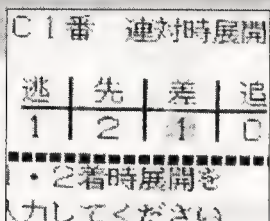 C1番 連対時展開
逃 先 差 追
1 2 1 0
1・2着時展開を
入力してください